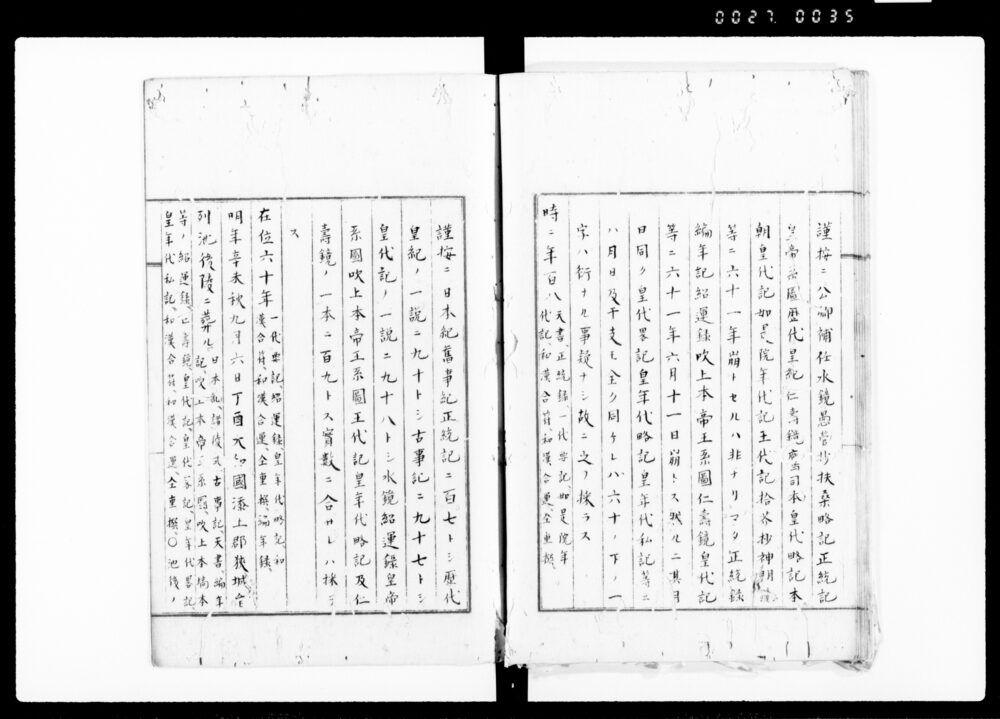 0027 0035
謹按ニ公卿補任水鏡愚管抄扶桑略記正統記
皇帝系圖歴代皇紀仁壽鏡 本皇代略記本
朝皇代記如是院年代記王代記拾芥抄神朝
等ニ六十一年崩トセルハ非ナリマタ正統録
編年記紹運録吹上本帝王系圖仁壽鏡皇代記
等ニ六十一年六月十一日崩トス然ルニ其月
日同ク皇代畧記皇年代略記皇年代私記等ニ
八月日及干支モ全ク同ケレハ六十ノ下ノ一
字ハ衍ナル事疑ナシ故ニ之ヲ採ラス
時ニ年百八天書正統録一代要記、如是院年
代記、和漢合符、和漢合運、仝重撰、
謹按ニ日本紀舊事紀正統記ニ百七トシ歴代
皇紀ノ一説ニ九十トシ古事記ニ九十七トシ
皇代記ノ一説ニ九十八トシ水鏡紹運録皇帝
系圖吹上本帝王系圖王代記皇年代略記及仁
壽鏡ノ一本ニ百九トス實數ニ合サレハ採ラ
ス
在位六十年一代要記、紹運録皇年代略記、和
漢合符、和漢合運仝重撰、編年録、
明年辛未秋九月六日丁酉大和國添上郡狹城盾
列池後陵ニ葬ル日本紀、諸陵式古事記、天書編年
記、吹上本帝王系圖、吹上本橋本
等ノ紹運録、仁壽鏡、皇代記、皇代畧記、皇年代畧記
皇年代私記、和漢合符、和漢合運、仝重撰、〇池後ノ